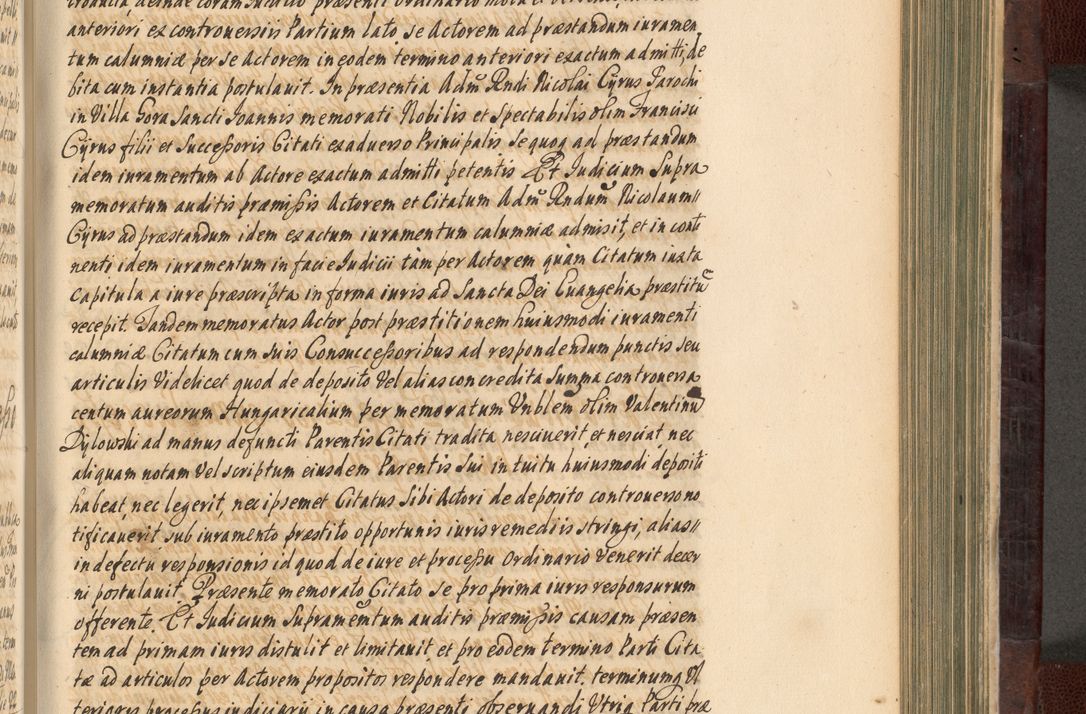 anteriori ex controversiis Partium lato se Actorem ad præstandum iuramen
tum calumniæ per se Actorem in eodem termino anteriori exactum admitti, de
bita cum instantia postulavit. In præsentia Adm̃ Rndi Nicolai Cyrus Parochi
in Villa Gora Sancti Joannis memorati Nobilis et Spectabilis olim Francisci
Cyrus filii et Successoris Citati ex adverso Principalis se quoq ad præstandum
idem iuramentum ab Actore exactum admitti petentis Et Judicium Supra
memoratum auditis præmissis Actorem et Citatum Adm̃ Rndum Nicolaum
Cyrus ad præstandum idem exactum iuramentum calumniæ admisit, et in conti
nenti idem iuramentum in facie Judicii tàm per Actorem quàm Citatum iuxta
capitula a iure præscripta in forma iuris ad Sancta Dei Evangelia præstitũ
recepit. Tandem memoratus Actor post præstitionem huiusmodi iuramenti
calumniæ Citatum cum suis Consuccessoribus ad respondendum punctis seu
articulis Videlicet quod de deposito Vel alias concredita Summa controversa
centum aureorum Hungaricalium per memoratum Vnblem olim Valentinũ
Dylowski ad manus defuncti Parentis Citati tradita nesciverit et nesciat nec
aliquam notam Vel scriptum eiusdem Parentis sui intuitu huiusmodi depositi
habeat, nec legerit, nec ipsemet Citatus Sibi Actori de deposito controverso no
tificaverit sub iuramento præstito opportunis iuris remediis stringi, alias
in defectu responsionis id quod de iure et processu ordinario Venerit decer
ni postulavit. Præsente memorato Citato se pro prima iuris responsurum
offerente. Et Judicium Supramentum auditis præmissis causam præsen
tem ad primam iuris distulit et limitavit et pro eodem termino Parti Cita
tæ ad articulos per Actorem propositos respondere mandavit, terminumq Vl
teriores processus iudiciarii in causa præsenti observandi Vtriq Parti præ